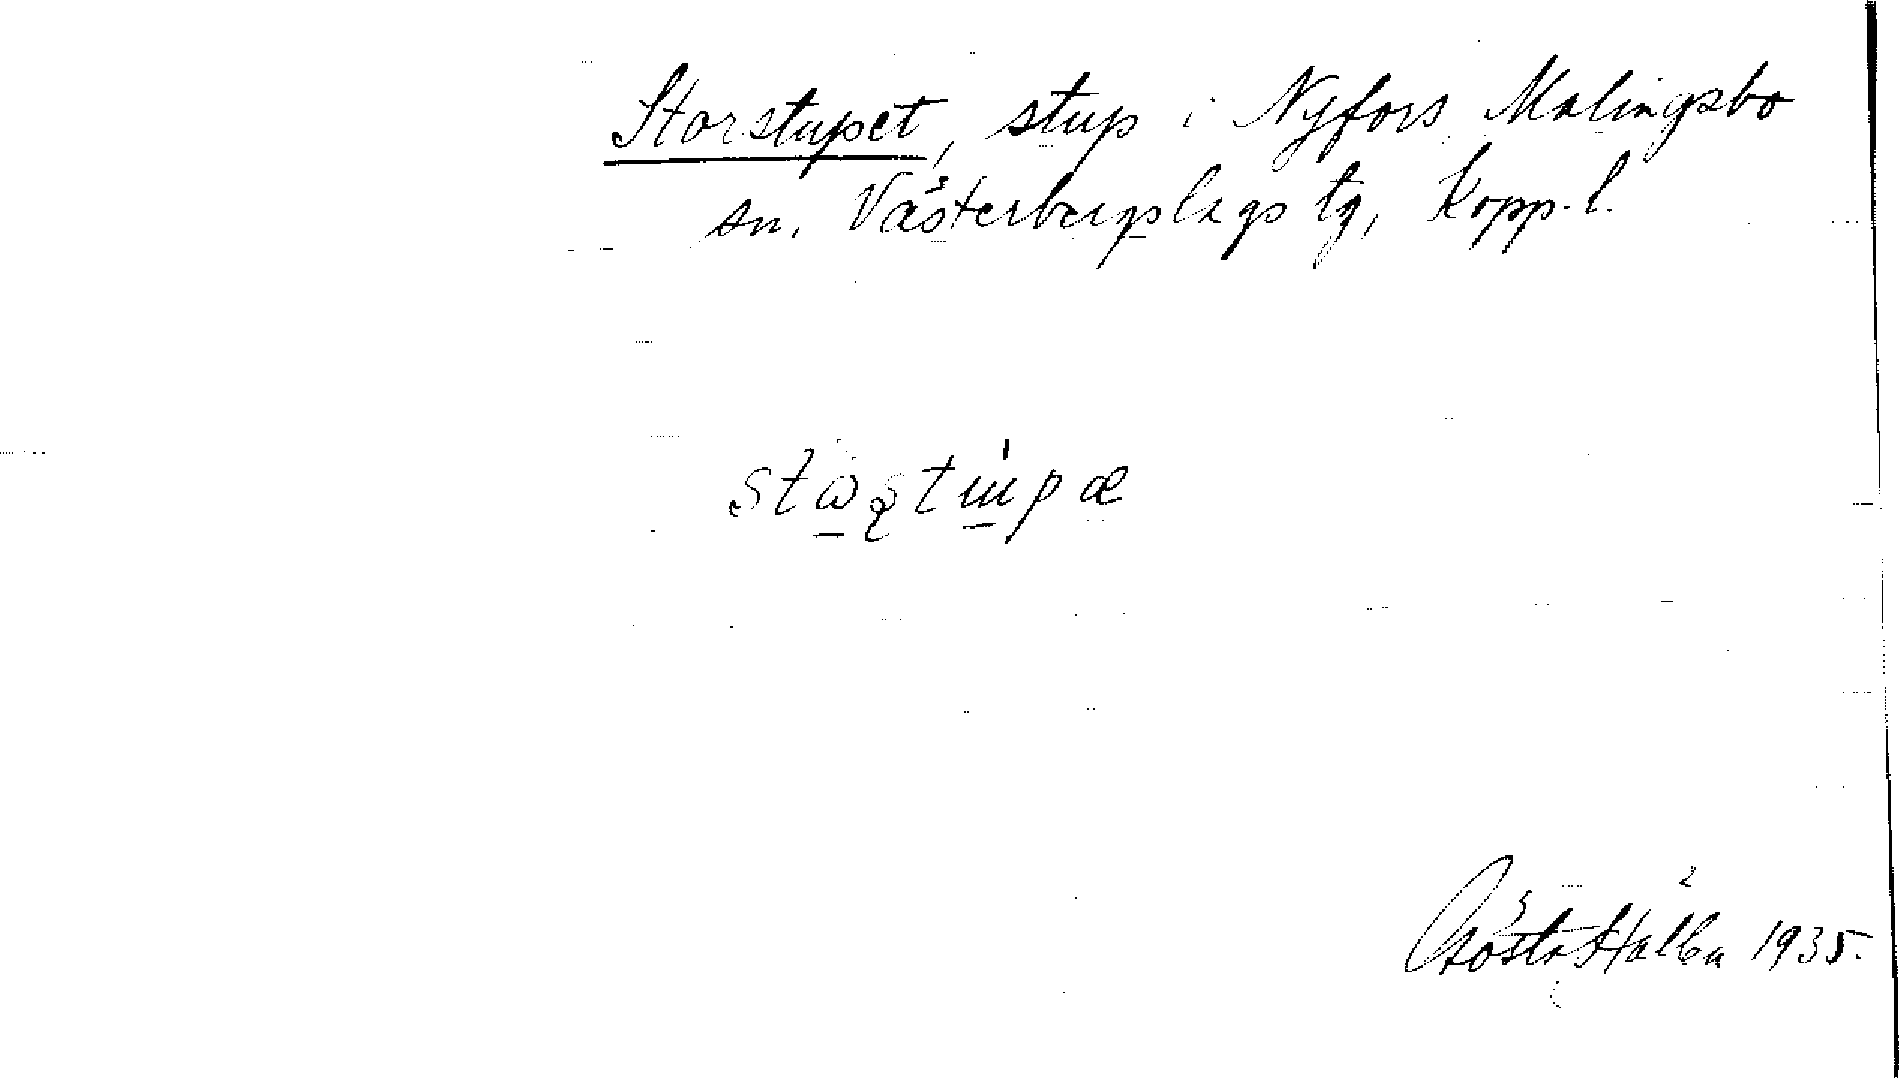 Storstupet, stup i Nyfors Malingsbo
sn. Västerbergslags tg, Kopp. l.
Gösta 1935.